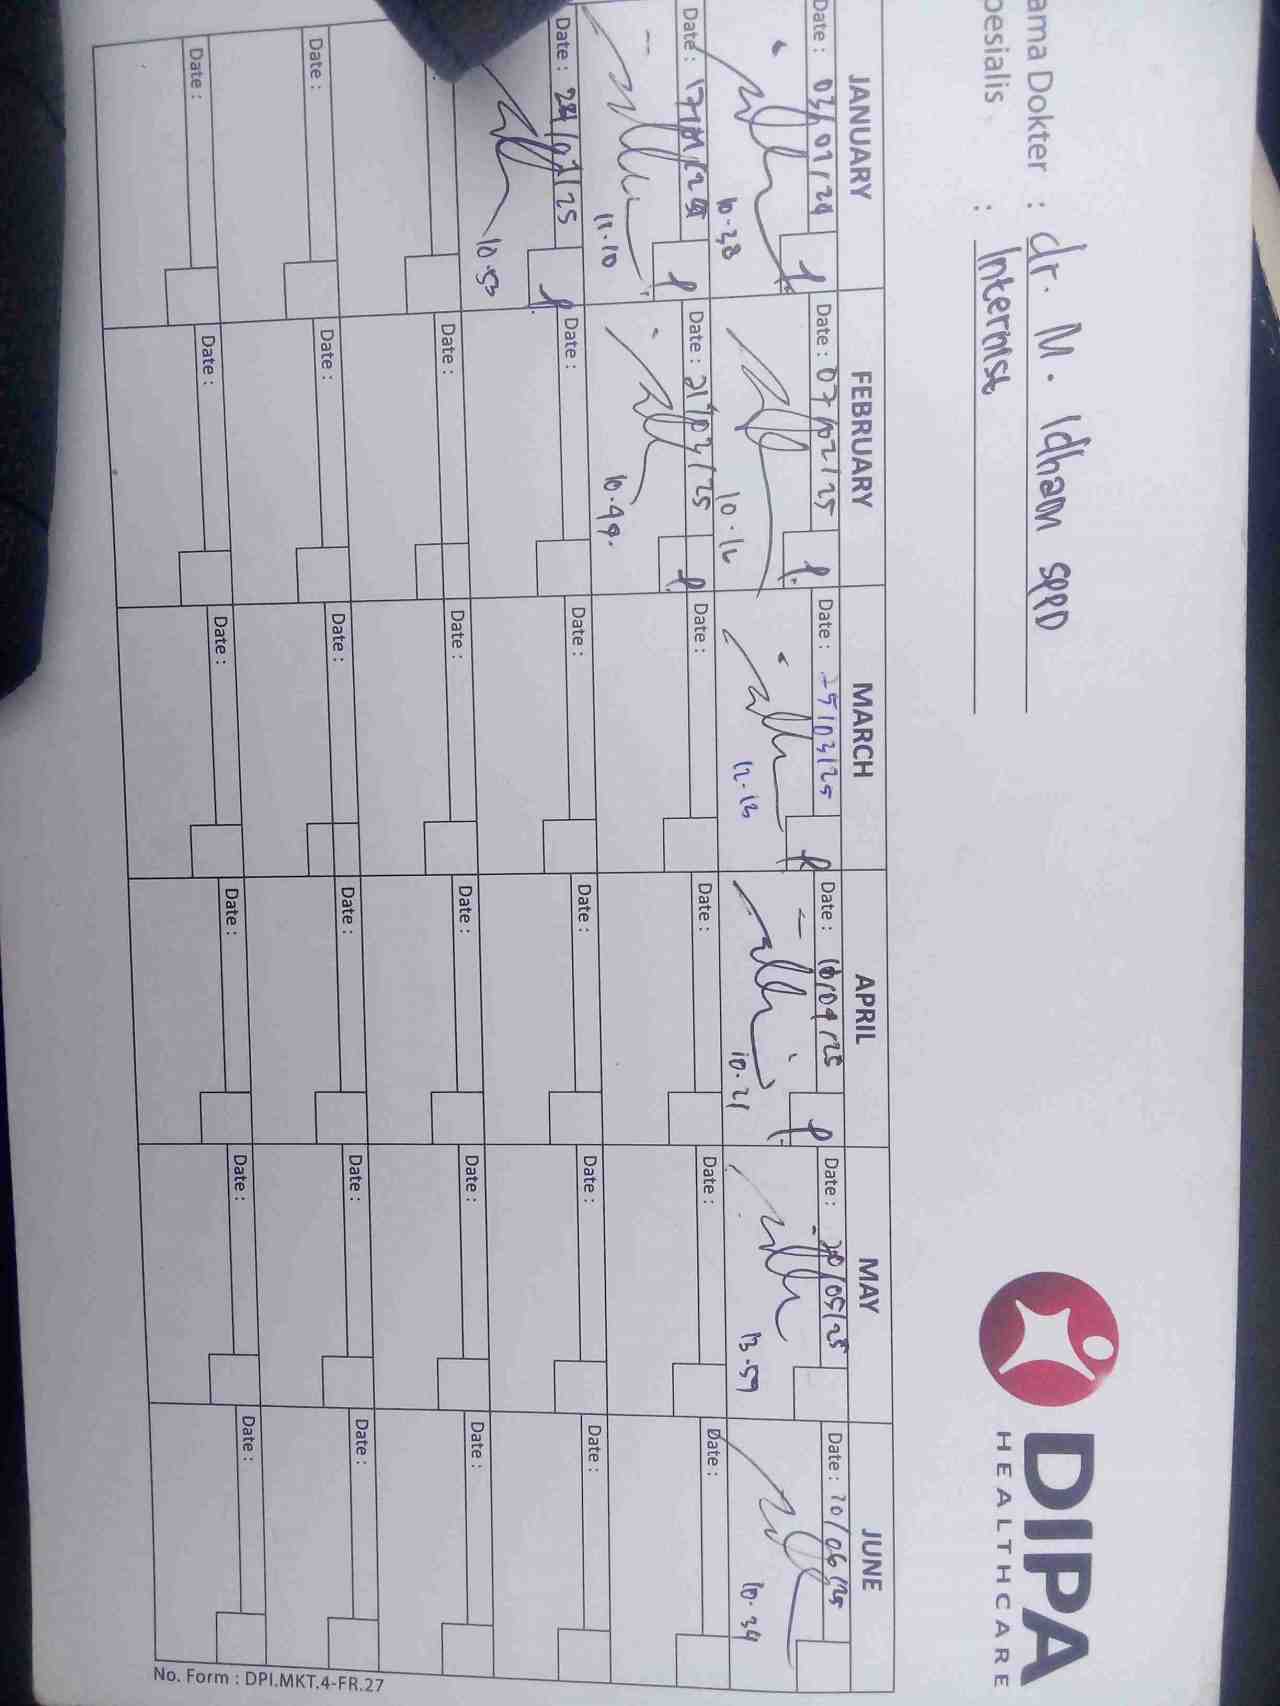 DIPA
HEALTHCARE
ama Dokter : dr. M. Idham SPPD
pesialis : Internist
JANUARY FEBRUARY MARCH APRIL MAY JUNE
Date : 03/01/24 Date : 07/02/25 Date : 25/03/25 Date : 10/04/25 Date : 20/05/25 Date : 20/06/25
10.38 10.16 12.13 10.21 13.59 10.34
Date : 17/01/25 Date : 21/03/25 Date : Date : Date : Date :
11.10 10.49.
Date : 24/01/25 Date : Date : Date : Date : Date :
10.53
Date : Date : Date : Date : Date :
Date : Date : Date : Date : Date : Date :
Date : Date : Date : Date : Date : Date :
No. Form : DPI.MKT.4-FR.27